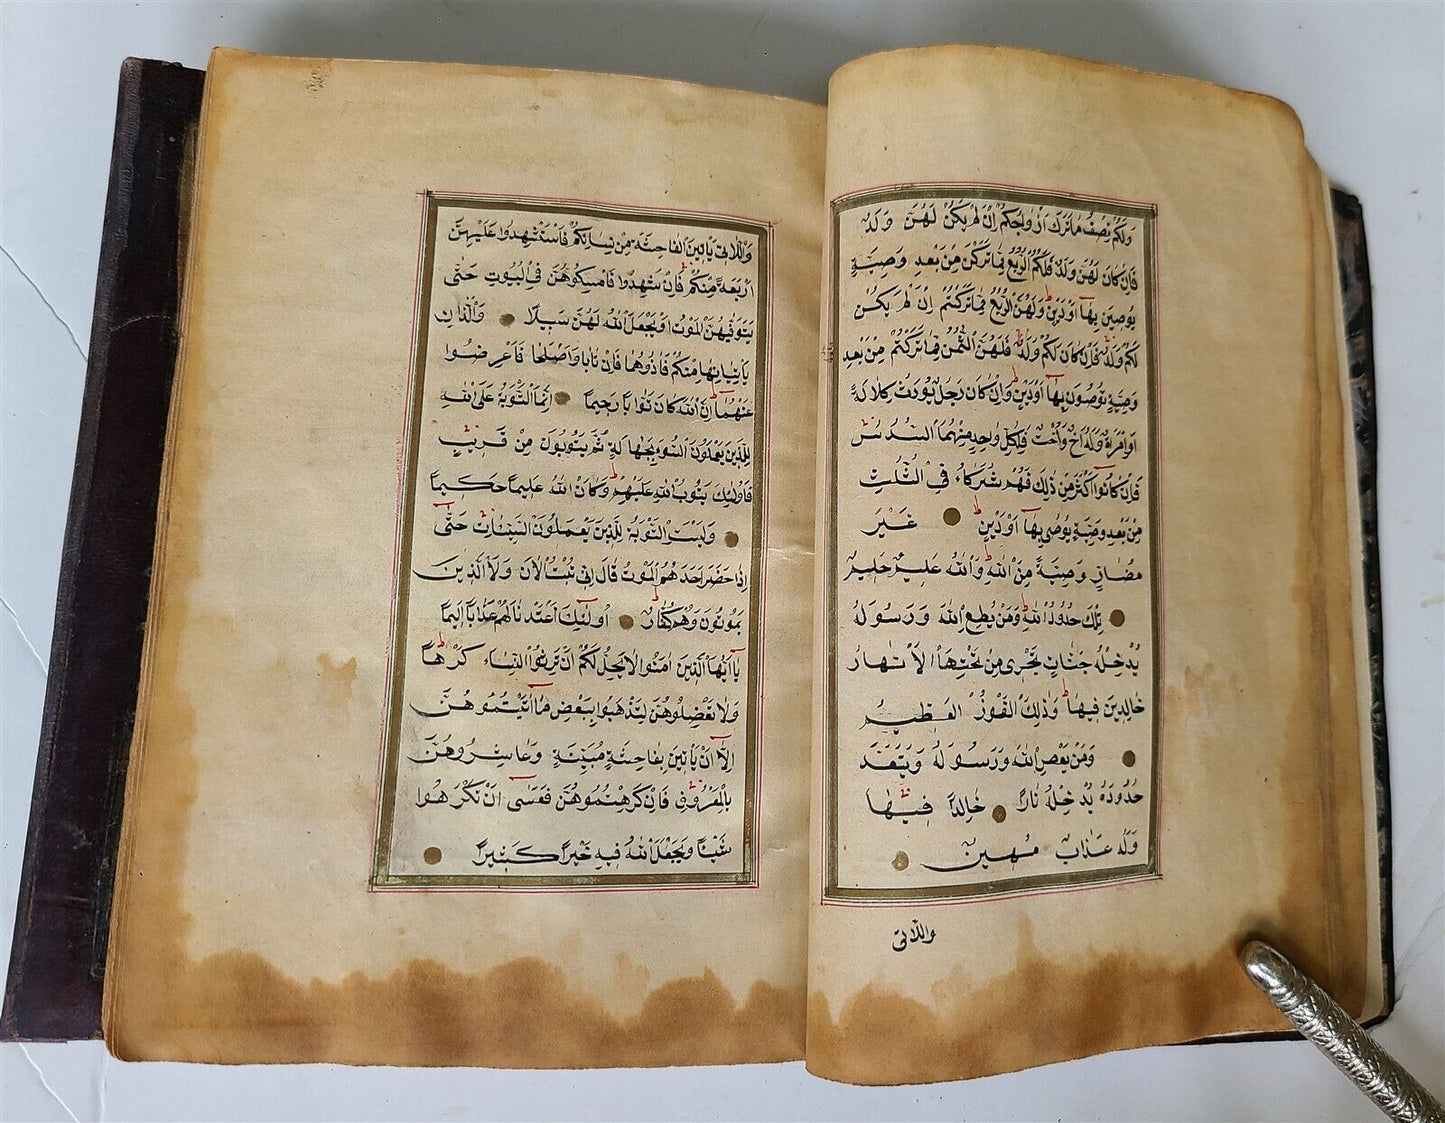 وَلَكُمْ نِصْفُ مَا تَرَكَ اَزْوَاجُكُمْ اِنْ لَمْ يَكُنْ لَهُنَّ وَلَدٌ
فَاِنْ كَانَ لَهُنَّ وَلَدٌ فَلَكُمُ الرُّبُعُ مِمَّا تَرَكْنَ مِنْ بَعْدِ وَصِيَّةٍ
يُوصِينَ بِهَا اَوْ دَيْنٍ وَلَهُنَّ الرُّبُعُ مِمَّا تَرَكْتُمْ اِنْ لَمْ يَكُنْ
لَكُمْ وَلَدٌ فَاِنْ كَانَ لَكُمْ وَلَدٌ فَلَهُنَّ الثُّمُنُ مِمَّا تَرَكْتُمْ مِنْ بَعْدِ
وَصِيَّةٍ تُوصُونَ بِهَا اَوْ دَيْنٍ وَاِنْ كَانَ رَجُلٌ يُورَثُ كَلَالَةً
اَوِ امْرَاَةٌ وَلَهُ اَخٌ وَاُخْتٌ فَلِكُلِّ وَاحِدٍ مِنْهُمَا السُّدُسُ
فَاِنْ كَانُوا اَكْثَرَ مِنْ ذٰلِكَ فَهُمْ شُرَكَاءُ فِي الثُّلُثِ
مِنْ بَعْدِ وَصِيَّةٍ يُوصٰى بِهَا اَوْ دَيْنٍ غَيْرَ
مُضَارٍّ وَصِيَّةً مِنَ اللّٰهِ وَاللّٰهُ عَلِيمٌ حَلِيمٌ
تِلْكَ حُدُودُ اللّٰهِ وَمَنْ يُطِعِ اللّٰهَ وَرَسُولَهُ
يُدْخِلْهُ جَنَّاتٍ تَجْرِى مِنْ تَحْتِهَا الْاَنْهَارُ
خَالِدِينَ فِيهَا وَذٰلِكَ الْفَوْزُ الْعَظِيمُ
وَمَنْ يَعْصِ اللّٰهَ وَرَسُولَهُ وَيَتَعَدَّ
حُدُودَهُ يُدْخِلْهُ نَارًا خَالِدًا فِيهَا
وَلَهُ عَذَابٌ مُهِينٌ
وَاللَّاتِى
وَاللَّاتِى يَاْتِينَ الْفَاحِشَةَ مِنْ نِسَائِكُمْ فَاسْتَشْهِدُوا عَلَيْهِنَّ
اَرْبَعَةً مِنْكُمْ فَاِنْ شَهِدُوا فَاَمْسِكُوهُنَّ فِى الْبُيُوتِ حَتّٰى
يَتَوَفّٰيهُنَّ الْمَوْتُ اَوْ يَجْعَلَ اللّٰهُ لَهُنَّ سَبِيلًا وَالَّذَانِ
يَاْتِيَانِهَا مِنْكُمْ فَاٰذُوهُمَا فَاِنْ تَابَا وَاَصْلَحَا فَاَعْرِضُوا
عَنْهُمَا اِنَّ اللّٰهَ كَانَ تَوَّابًا رَحِيمًا اِنَّمَا التَّوْبَةُ عَلَى اللّٰهِ
لِلَّذِينَ يَعْمَلُونَ السُّوءَ بِجَهَالَةٍ ثُمَّ يَتُوبُونَ مِنْ قَرِيبٍ
فَاُولٰئِكَ يَتُوبُ اللّٰهُ عَلَيْهِمْ وَكَانَ اللّٰهُ عَلِيمًا حَكِيمًا
وَلَيْسَتِ التَّوْبَةُ لِلَّذِينَ يَعْمَلُونَ السَّيِّئَاتِ حَتّٰى
اِذَا حَضَرَ اَحَدَهُمُ الْمَوْتُ قَالَ اِنِّى تُبْتُ الْاٰنَ وَلَا الَّذِينَ
يَمُوتُونَ وَهُمْ كُفَّارٌ اُولٰئِكَ اَعْتَدْنَا لَهُمْ عَذَابًا اَلِيمًا
يَا اَيُّهَا الَّذِينَ اٰمَنُوا لَا يَحِلُّ لَكُمْ اَنْ تَرِثُوا النِّسَاءَ كَرْهًا
وَلَا تَعْضُلُوهُنَّ لِتَذْهَبُوا بِبَعْضِ مَا اٰتَيْتُمُوهُنَّ
اِلَّا اَنْ يَاْتِينَ بِفَاحِشَةٍ مُبَيِّنَةٍ وَعَاشِرُوهُنَّ
بِالْمَعْرُوفِ فَاِنْ كَرِهْتُمُوهُنَّ فَعَسٰى اَنْ تَكْرَهُوا
شَيْئًا وَيَجْعَلَ اللّٰهُ فِيهِ خَيْرًا كَثِيرًا